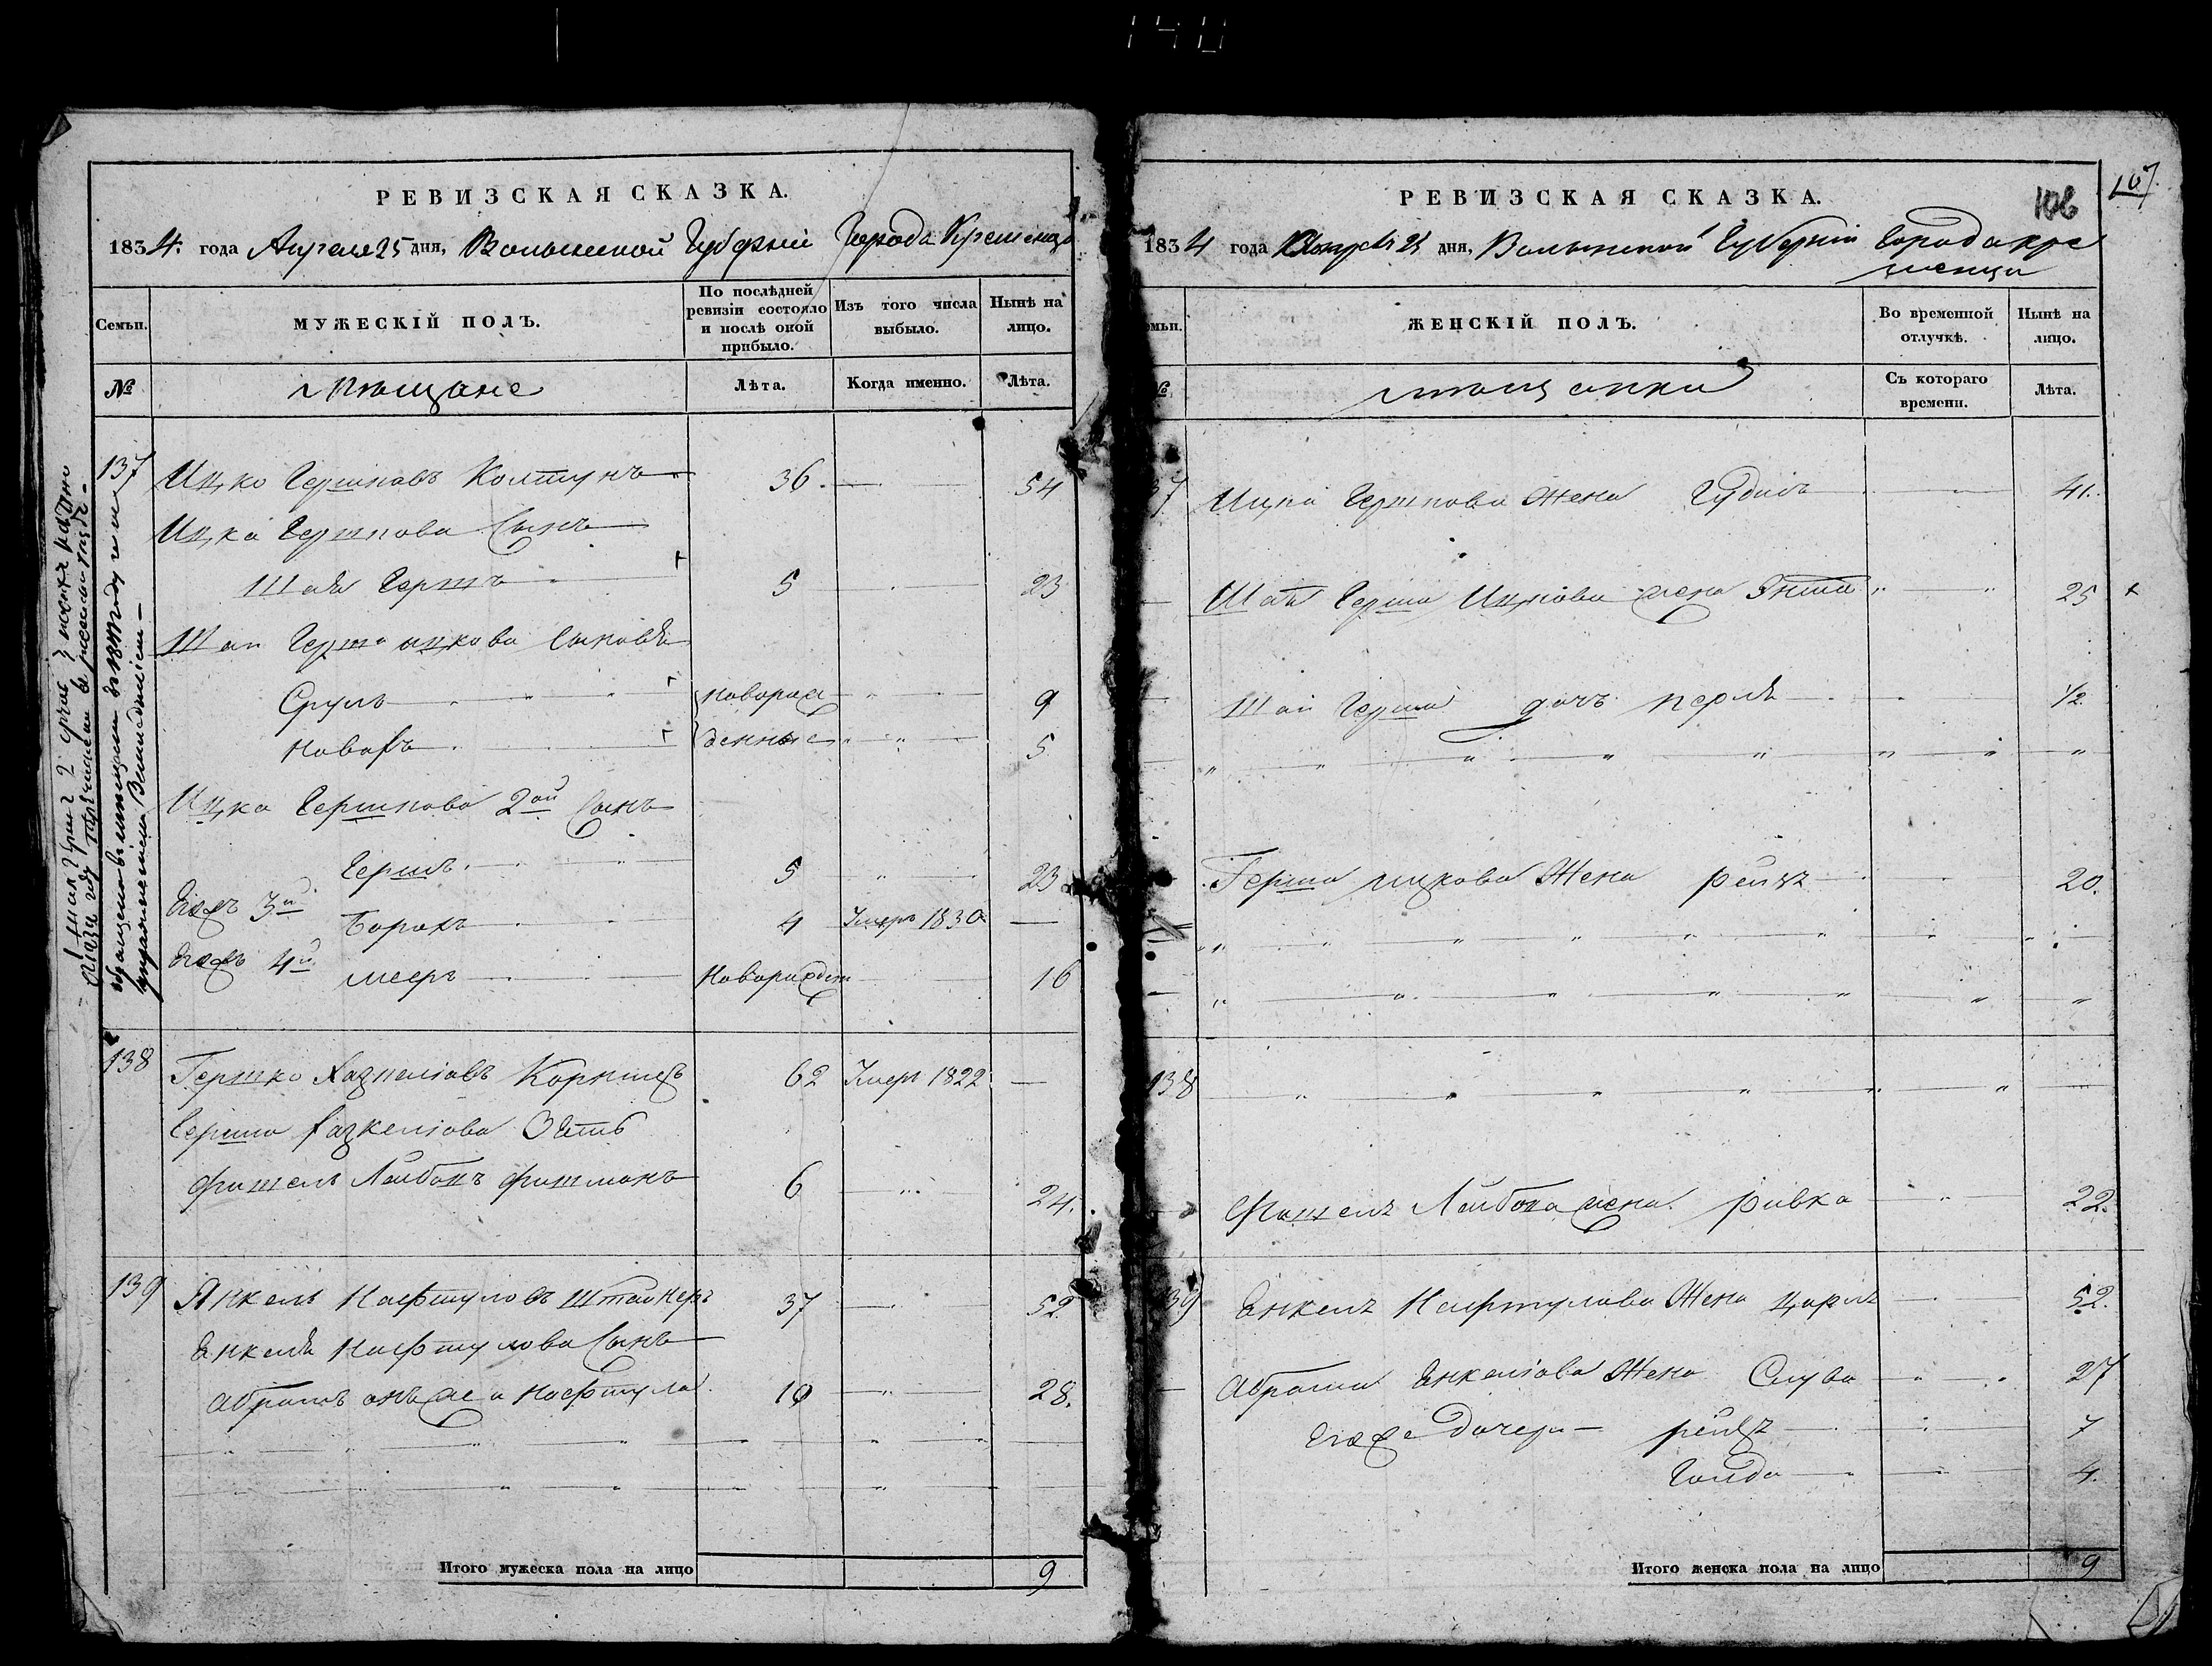 140
РЕВИЗСКАЯ СКАЗКА.
1834. года Апреля 25 дня, Волынской Губернии Города Кременца
Семьи.
МУЖЕСКІЙ ПОЛЪ.
По послѣдней ревизіи состояло и послѣ оной прибыло.
Изъ того числа выбыло.
Нынѣ на лицо.
№
мѣщане
Лѣта.
Когда именно.
Лѣта.
137 Ицко Гершковъ Колтунъ 36. 54
Ицка Гершкова Сынъ
Шая Гершъ 5 23
Шаи Герша ицкова сыновья
Сруль новорож 9
денные 5
Ицка Гершкова 2ой Сынъ
Гершъ 5 23
Егожъ 3й Борохъ 4 Умеръ 1830 —
Егожъ 4й мееръ Новорожден 16
138 Гершко Хазкеліовъ 62 Умеръ 1822 —
Герша Хазкеліова Зять
фишель Лейбовъ фишманъ 6 24.
139 Янкель Нафтуловъ Штайнеръ 37 52.
Енкеля Нафтулова Сынъ
Абрамъ онъ же и Нафтула 10 28.
Итого мужеска пола на лицо 9
РЕВИЗСКАЯ СКАЗКА.
106
107
1834 года 25 дня, Волынской Губерніи Города кре
менца
ЖЕНСКІЙ ПОЛЪ.
Во временной отлучкѣ.
Нынѣ на лицо.
№
мѣщанки
Съ котораго времени.
Лѣта.
37 Ицка Гершкова Жена 41.
Шаи Герша Ицкова жена 25
Шаи Герша дочь перля 1/2
Герша ицкова Жена рейзя 20.
138
Фишеля Лейбова жена ривка 22.
139 Енкеля Нафтулова Жена царля 52.
Абрама Енкеліова Жена Слува 27
Егоже Дочери рейзя 7
Голда 4.
Итого женска пола на лицо 9